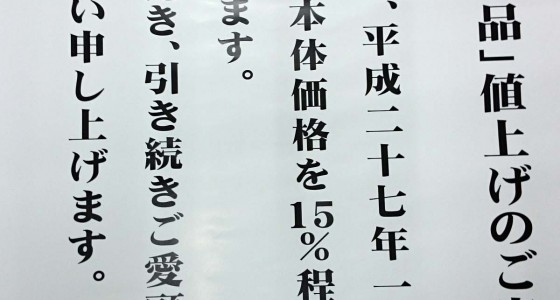 品」値上げのご
、平成二十七年一
本体価格を15%程
ます。
き、引き続きご愛
い申し上げます。